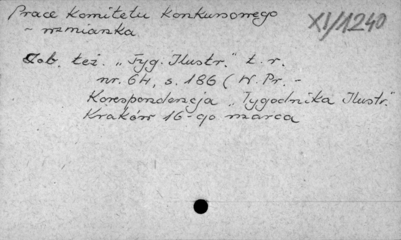 Prace Komitetu Konkursowego
XI/1240
- wzmianka
Zob. też. "Tyg. Ilustr." t. r.
nr. 64, s. 186 (W. Pr. -
Korespondencja "Tygodnika Ilustr."
Kraków 16-go marca